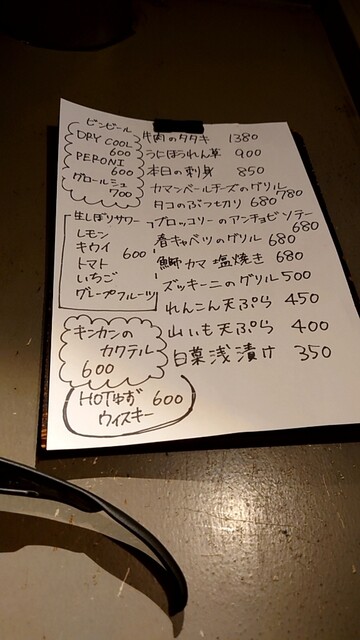 ビンビール
DRY COOL
600
PERONI
600
グロールシュ
700
生しぼりサワー
レモン
キウイ
トマト
いちご
グレープフルーツ
600
キンカンの
カクテル
600
HOTゆず 600
ウィスキー
牛肉のタタキ 1380
うにほうれん草 900
本日の刺身 850
カマンベールチーズのグリル 780
タコのぶつ切り 680
ブロッコリーのアンチョビソテー 680
春キャベツのグリル 680
鰤カマ 塩焼き 680
ズッキーニのグリル 500
れんこん天ぷら 450
山いも天ぷら 400
白菜浅漬け 350